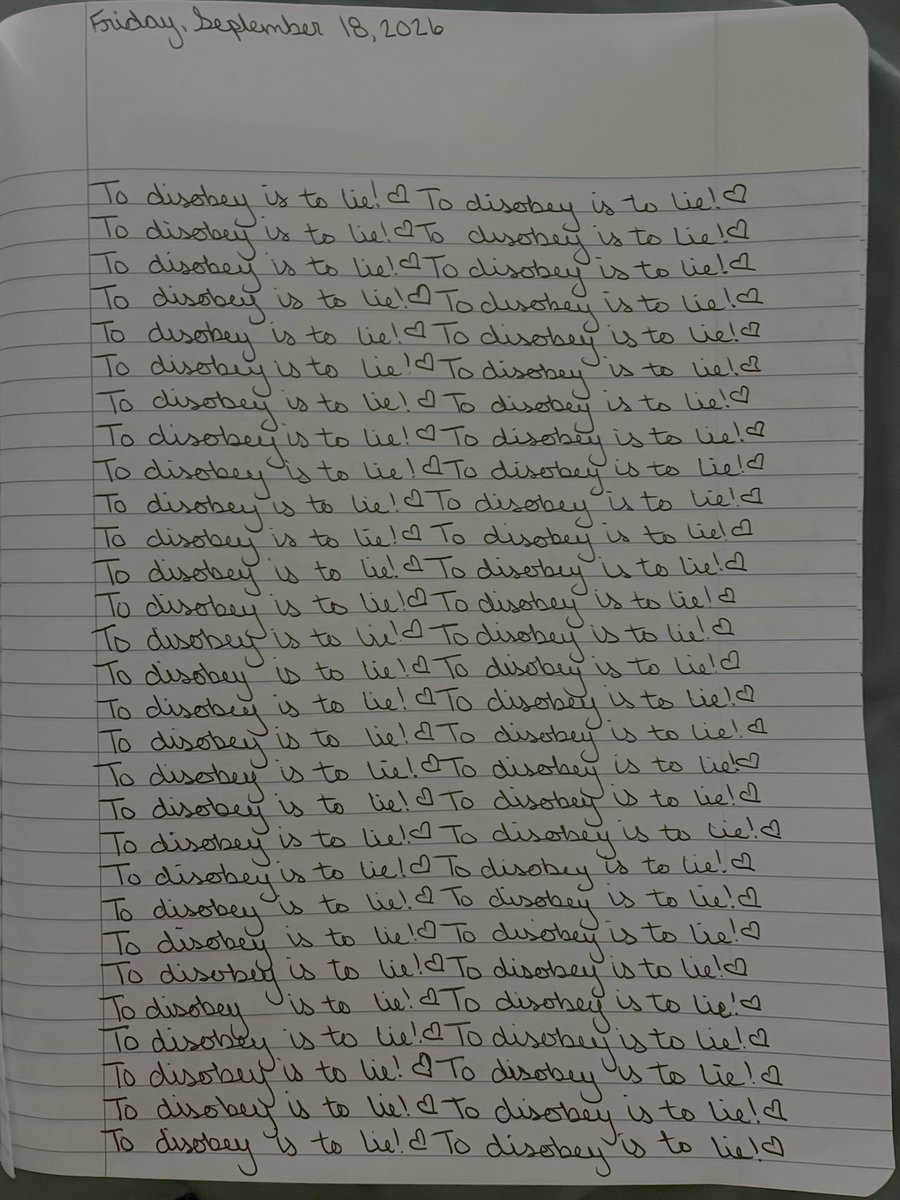 Friday, September 18, 2026
To disobey is to lie!♡ To disobey is to lie!♡
To disobey is to lie!♡ To disobey is to lie!♡
To disobey is to lie!♡ To disobey is to lie!♡
To disobey is to lie!♡ To disobey is to lie!♡
To disobey is to lie!♡ To disobey is to lie!♡
To disobey is to lie!♡ To disobey is to lie!♡
To disobey is to lie!♡ To disobey is to lie!♡
To disobey is to lie!♡ To disobey is to lie!♡
To disobey is to lie!♡ To disobey is to lie!♡
To disobey is to lie!♡ To disobey is to lie!♡
To disobey is to lie!♡ To disobey is to lie!♡
To disobey is to lie!♡ To disobey is to lie!♡
To disobey is to lie!♡ To disobey is to lie!♡
To disobey is to lie!♡ To disobey is to lie!♡
To disobey is to lie!♡ To disobey is to lie!♡
To disobey is to lie!♡ To disobey is to lie!♡
To disobey is to lie!♡ To disobey is to lie!♡
To disobey is to lie!♡ To disobey is to lie!♡
To disobey is to lie!♡ To disobey is to lie!♡
To disobey is to lie!♡ To disobey is to lie!♡
To disobey is to lie!♡ To disobey is to lie!♡
To disobey is to lie!♡ To disobey is to lie!♡
To disobey is to lie!♡ To disobey is to lie!♡
To disobey is to lie!♡ To disobey is to lie!♡
To disobey is to lie!♡ To disobey is to lie!♡
To disobey is to lie!♡ To disobey is to lie!♡
To disobey is to lie!♡ To disobey is to lie!♡
To disobey is to lie!♡ To disobey is to lie!♡
To disobey is to lie!♡ To disobey is to lie!♡